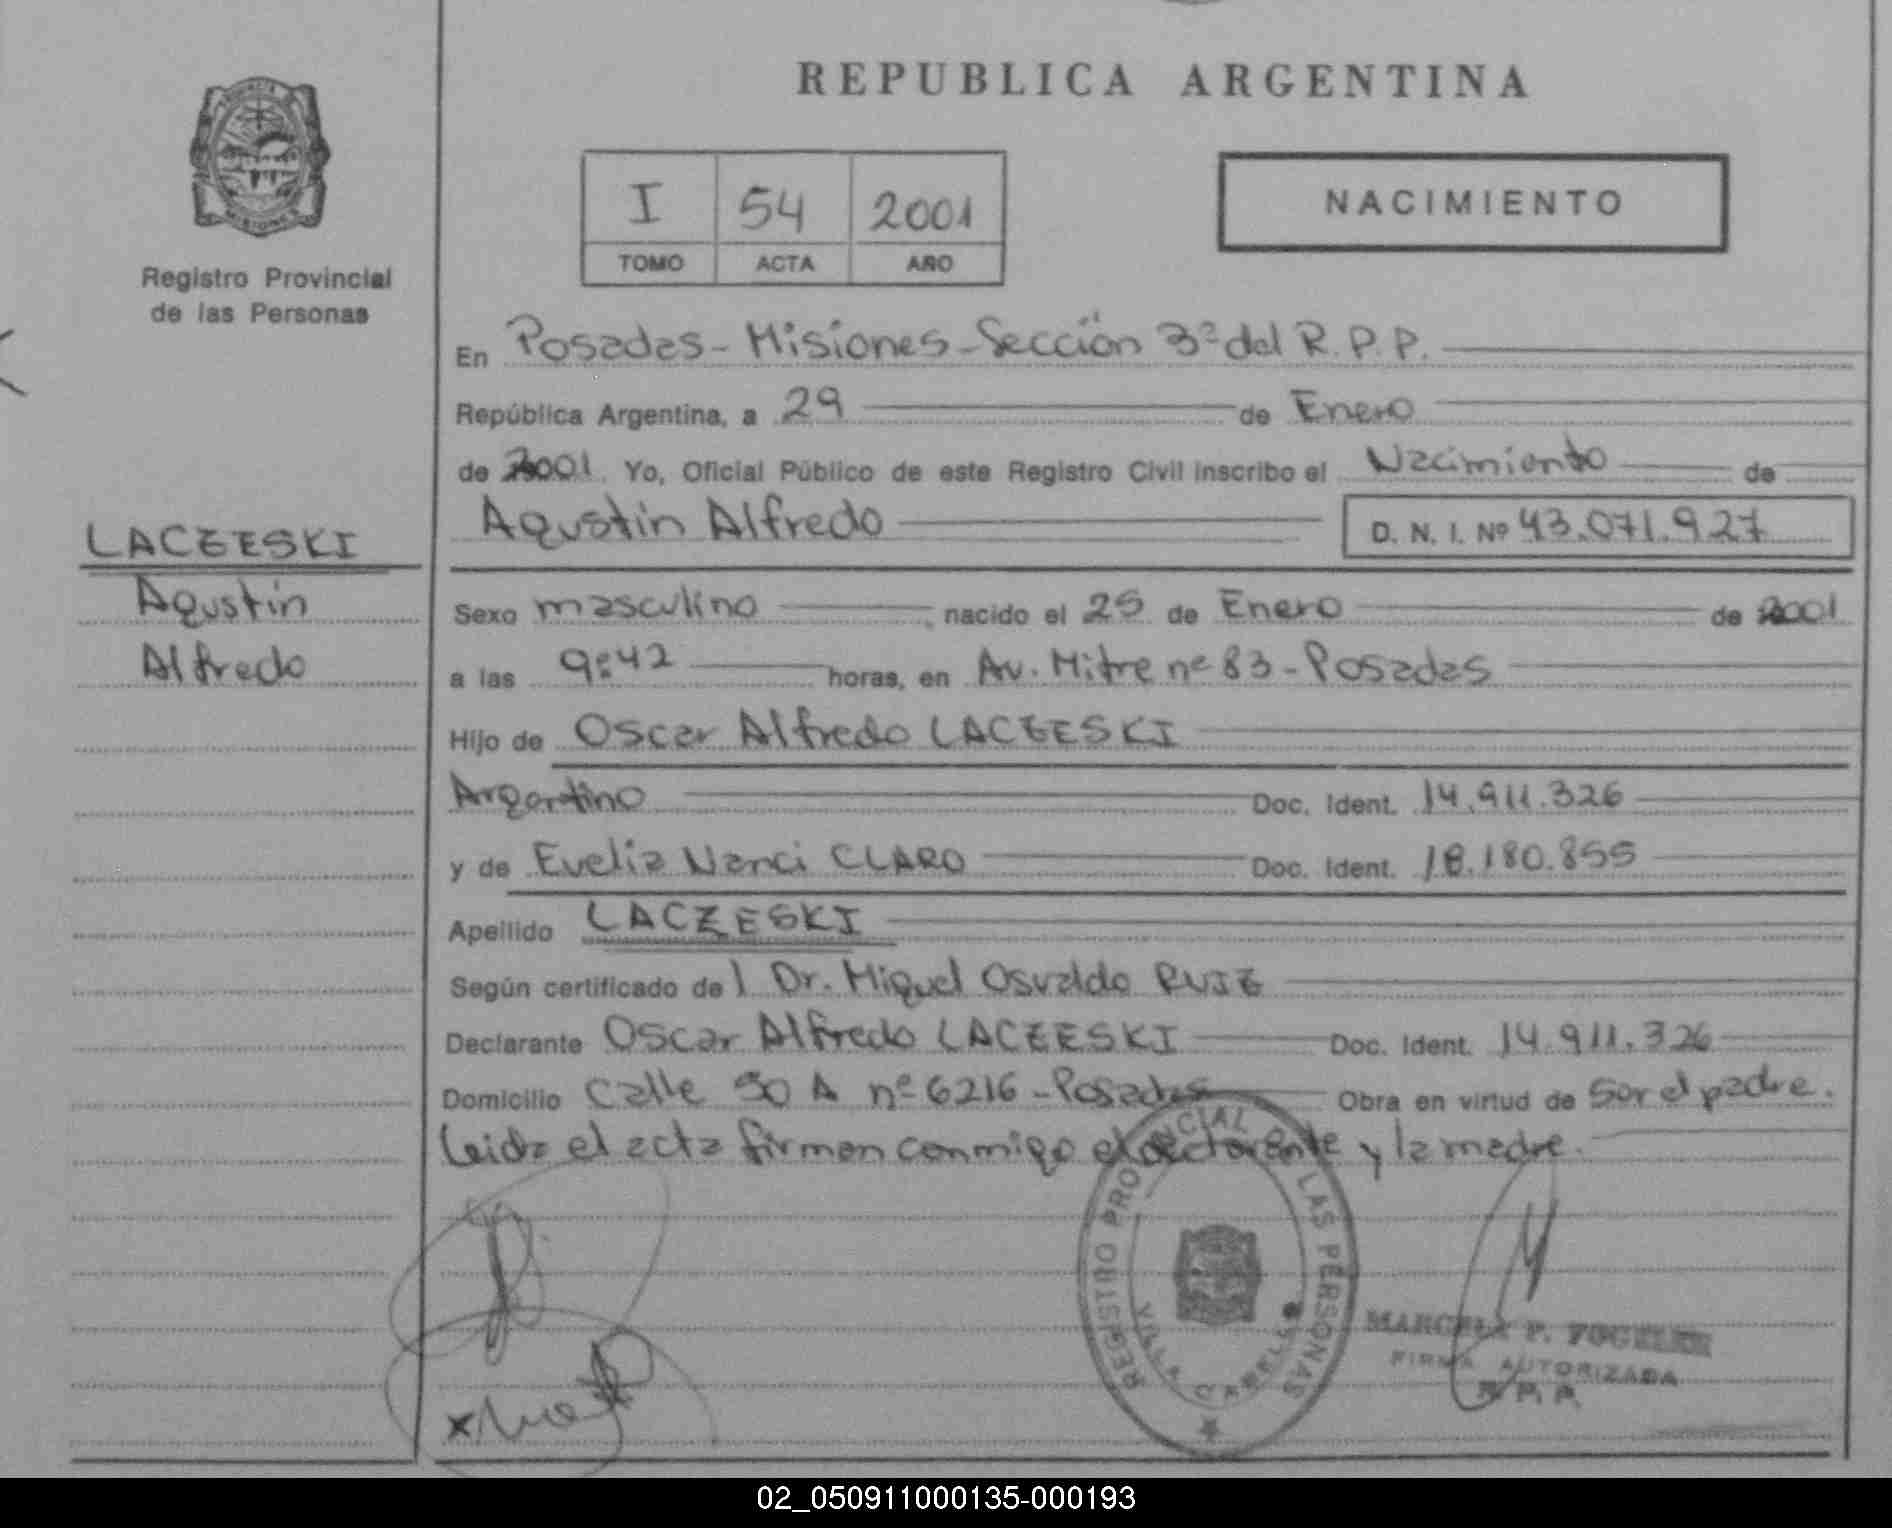 REPUBLICA ARGENTINA
Registro Provincial
de las Personas
I 54 2001
TOMO ACTA AÑO
NACIMIENTO
En Posadas - Misiones - Sección 3ª del R. P. P.
República Argentina, a 29 de Enero
de 2001. Yo, Oficial Público de este Registro Civil inscribo el Nacimiento de
Agustin Alfredo D. N. I. Nº 43.071.927
LACZESKI
Agustin
Alfredo
Sexo masculino, nacido el 25 de Enero de 2001
a las 9:42 horas, en Av. Mitre nº 83 - Posadas
Hijo de Oscar Alfredo LACZESKI
Argentino Doc. Ident. 14.911.326
y de Evelia Nanci CLARO Doc. Ident. 18.180.855
Apellido LACZESKI
Según certificado del Dr. Miguel Osvaldo RUIZ
Declarante Oscar Alfredo LACZESKI Doc. Ident. 14.911.326
Domicilio Calle 50 A nº 6216 - Posadas Obra en virtud de Ser el padre.
Leida el acta firman conmigo el declarante y la madre.
REGISTRO PROVINCIAL DE LAS PERSONAS
VILLA CABELLO
MARCELA P.
FIRMA AUTORIZADA
R. P. P.
02_050911000135-000193